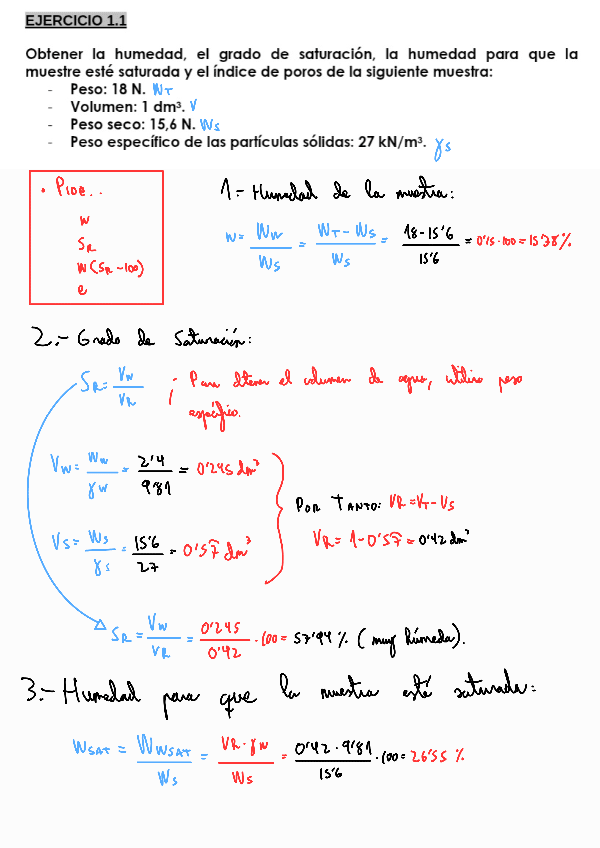 EJERCICIO 1.1
Obtener la humedad, el grado de saturación, la humedad para que la
muestre esté saturada y el índice de poros de la siguiente muestra:
- Peso: 18 N. WT
- Volumen: 1 dm³. V
- Peso seco: 15,6 N. Ws
- Peso específico de las partículas sólidas: 27 kN/m³. γs
• PIDE..
w
SR
w (SR-100)
e
1.- Humedad de la muestra:
w = Ww/Ws = (WT - Ws)/Ws = (18-15'6)/15'6 = 0'15·100 = 15'38%
2.- Grado de saturación:
SR = Vw/VR ; Para obtener el volumen de agua, utilizo peso
específico.
Vw = Ww/γw = 2'4/9'81 = 0'245 dm³
Vs = Ws/γs = 15'6/27 = 0'57 dm³
POR TANTO: VR = VT - Vs
VR = 1 - 0'57 = 0'42 dm³
SR = Vw/VR = 0'245/0'42 · 100 = 57'94 % (muy húmeda).
3.- Humedad para que la muestra esté saturada:
WSAT = WwSAT/Ws = VR·γw/Ws = 0'42·9'81/15'6 · 100 = 26'55 %